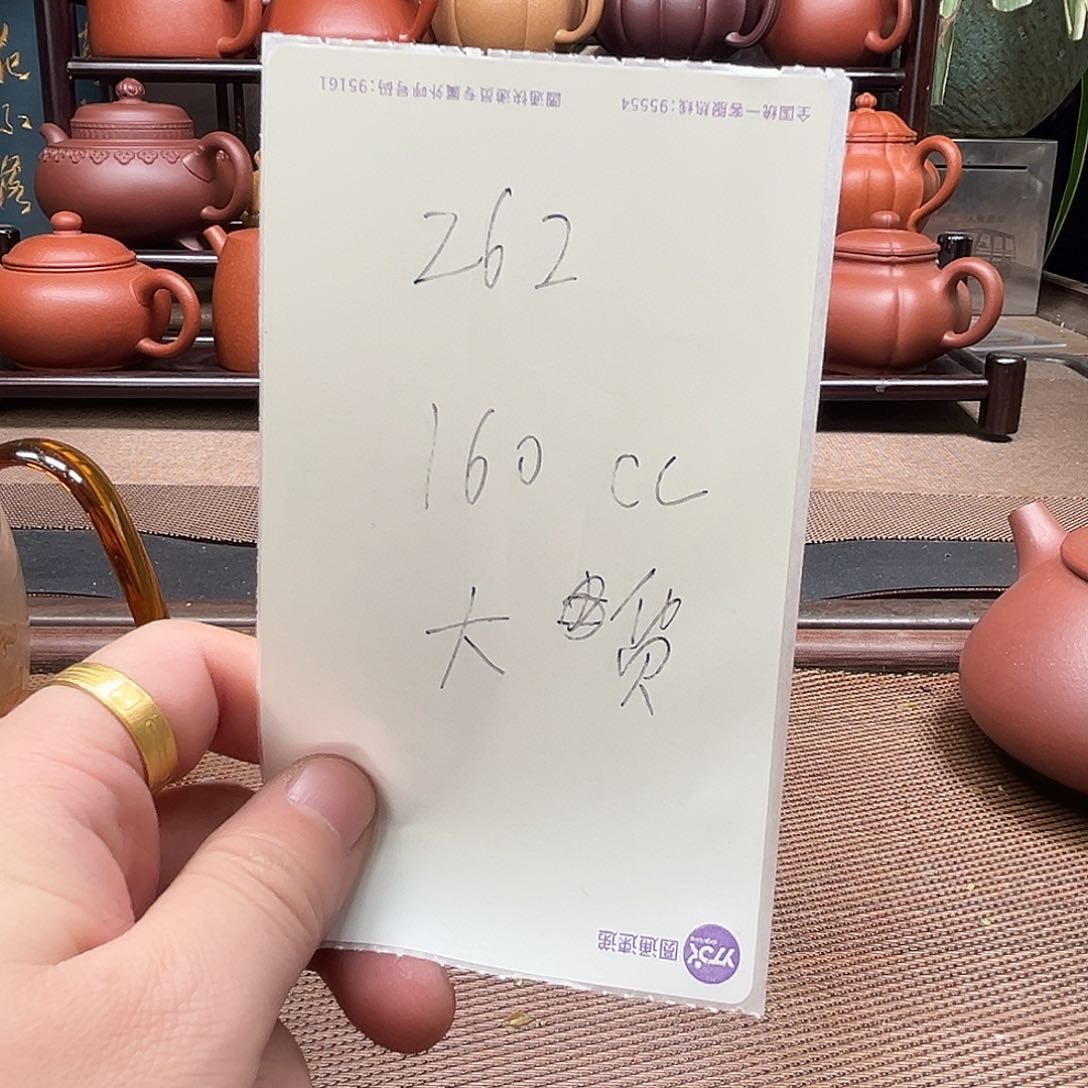 全国统一客服热线:95554 圆通快递员专属外呼号码:95161
262
160 cc
大 货
圆通速递